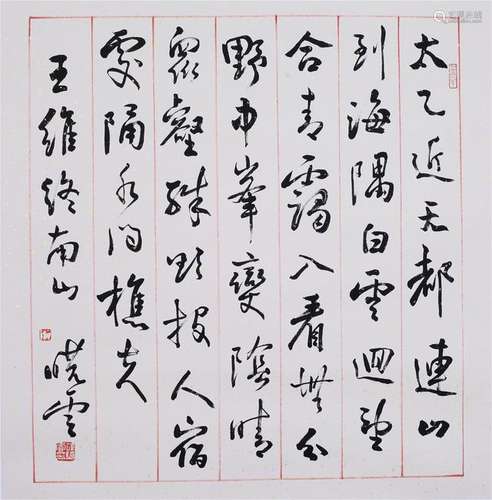 太乙近天都連山
到海隅白雲迴望
合青靄入看無分
野中峯變陰晴
衆壑殊欲投人宿
處隔水問樵夫
王維終南山 曉雲